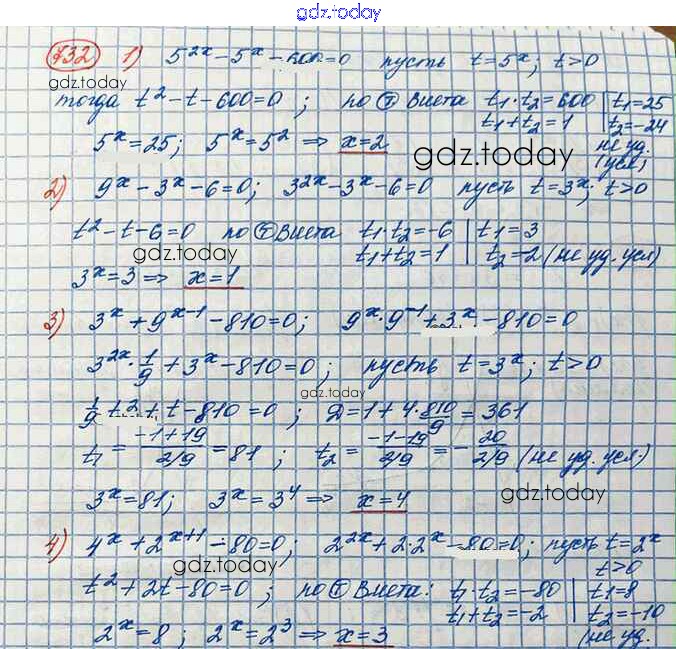 gdz.today
732 1) 5^{2x} - 5^x - 600 = 0 пусть t = 5^x; t > 0
gdz.today
тогда t² - t - 600 = 0 ; по Т Виета t₁·t₂ = 600 | t₁ = 25
t₁ + t₂ = 1 | t₂ = -24
5^x = 25; 5^x = 5² ⇒ x = 2 не уд.
gdz.today (усл)
2) 9^x - 3^x - 6 = 0; 3^{2x} - 3^x - 6 = 0 пусть t = 3^x; t > 0
t² - t - 6 = 0 по Т Виета t₁·t₂ = -6 | t₁ = 3
gdz.today t₁ + t₂ = 1 | t₂ = -2 (не уд. усл)
3^x = 3 ⇒ x = 1
3) 3^x + 9^{x-1} - 810 = 0; 9^x · 9^{-1} + 3^x - 810 = 0
3^{2x} · 1/9 + 3^x - 810 = 0; пусть t = 3^x; t > 0
gdz.today
1/9 t² + t - 810 = 0 ; D = 1 + 4 · 810/9 = 361
t₁ = (-1+19)/(2/9) = 81 ; t₂ = (-1-19)/(2/9) = -20/(2/9) (не уд. усл.)
3^x = 81; 3^x = 3⁴ ⇒ x = 4 gdz.today
4) 4^x + 2^{x+1} - 80 = 0; 2^{2x} + 2·2^x - 80 = 0; пусть t = 2^x
gdz.today t > 0
t² + 2t - 80 = 0 ; по Т Виета: t₁·t₂ = -80 | t₁ = 8
t₁ + t₂ = -2 | t₂ = -10
2^x = 8 ; 2^x = 2³ ⇒ x = 3 (не уд.